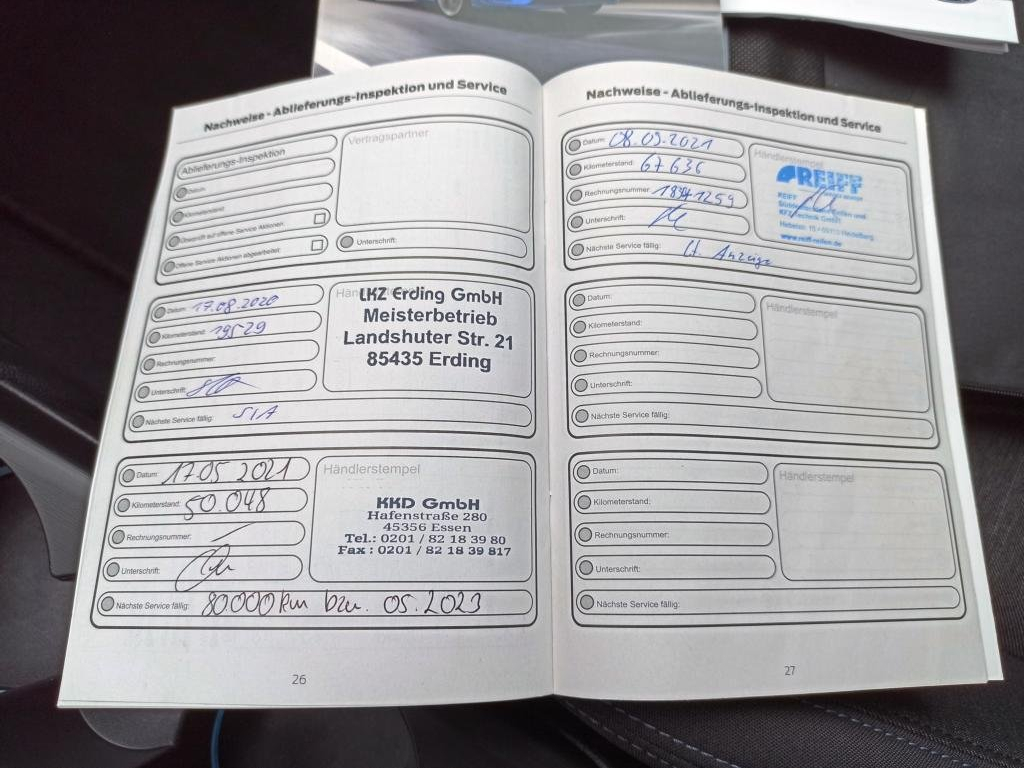 Nachweise - Ablieferungs-Inspektion und Service
Ablieferungs-Inspektion
Datum:
Kilometerstand:
Überprüft auf offene Service Aktionen:
Offene Service Aktionen abgearbeitet:
Vertragspartner
Unterschrift:
Datum: 17.08.2020
Kilometerstand: 19529
Rechnungsnummer:
Unterschrift:
Nächste Service fällig: SIA
Händlerstempel
LKZ Erding GmbH
Meisterbetrieb
Landshuter Str. 21
85435 Erding
Datum: 17.05.2021
Kilometerstand: 50.048
Rechnungsnummer: –
Unterschrift:
Nächste Service fällig: 80000 km bzw. 05.2023
Händlerstempel
KKD GmbH
Hafenstraße 280
45356 Essen
Tel.: 0201 / 82 18 39 80
Fax : 0201 / 82 18 39 817
26
Nachweise - Ablieferungs-Inspektion und Service
Datum: 08.09.2021
Kilometerstand: 67636
Rechnungsnummer:
Unterschrift:
Nächste Service fällig: lt. Anzeige
Händlerstempel
REIFF
REIFF
Reifen und
KFZ-Technik GmbH
Heidelberg
www.reiff-reifen.de
Datum:
Kilometerstand:
Rechnungsnummer:
Unterschrift:
Nächste Service fällig:
Händlerstempel
Datum:
Kilometerstand:
Rechnungsnummer:
Unterschrift:
Nächste Service fällig:
Händlerstempel
27